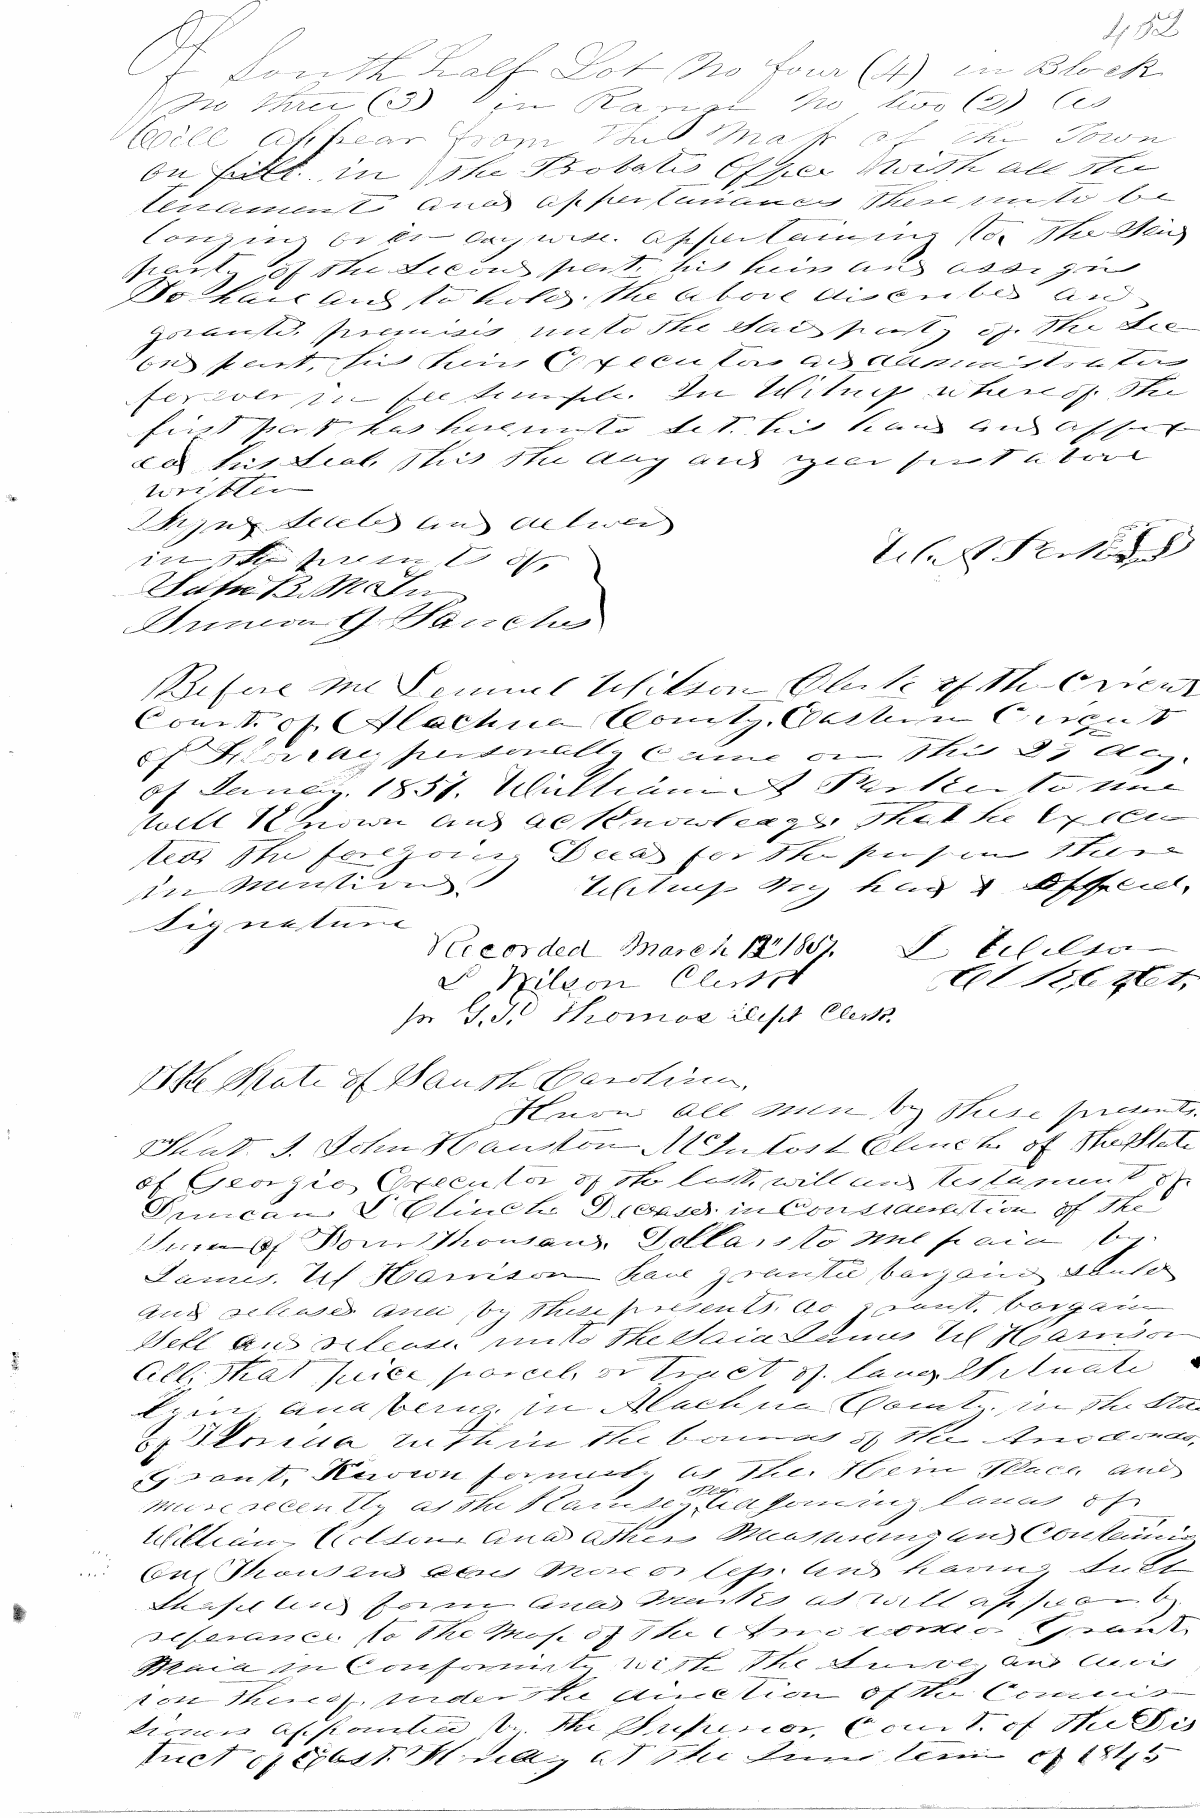 452
Of South half Lot No four (4) in Block
No three (3) in Range No two (2) as
will appear from the Map of the Town
on file in the Probates Office with all the
tenaments and appertainances there unto be
longing or in any wise appertaining to the said
party of the second part his heirs and assigns
To have and to hold the above discribed and
granted premisis unto the said party of the Sec
ond part, his heirs Executors and administrators
forever in fee simple. In Witness where of the
first part has hereunto set his hand and affix
ed his Seal, this the day and year first above
written
Signed sealed and deliverd
in the presents of,
W. A Parker
John B. McIn
Duncan G
Before me Lemuel Wilson Clerk of the Circuit
Court of Alachua County, Eastern Circuit
of Florida personally came on this 27 day,
of January 1857. William A Parker to me
well Known and acknowledged that he Execu
ted the foregoing Deed for the purposes there
in mentiond. Witness my hand & official,
signature
L Wilson
Recorded March 1857.
L Wilson Clerk
for G.S. Thomas Dept Clerk.
The State of South Carolina.
Know all men by these presents.
That I. John Houston McIntosh Clinch of the State
of Georgia Executor of the last will and testament of
Duncan L Clinch Deceased in Consideration of the
Sum of Four Thousand Dollars to me paid by
James W Harrison have granted bargaind sould
and released and by these presents do grant, bargain
Sell and release unto the said James W Harrison
All that piece parcel or tract of land Situate
lying and being in Alachua County in the Sta
of Florida within the bounds of the Arredondo,
Grant, Known formerly as the Hein Place and
more recently as the Ramsey Place adjoining lands of
William and others Measuring and Containing
One Thousand acres more or less and having such
Shape and form and marks as will appear by
referance to the Map of the Arredondo Grant
Maid in Conformity with the Survey and divis
ion thereof under the direction of the Commis
sioners appointed by the Superior Court of the Dis
trict of East Florida at the June term of 1845